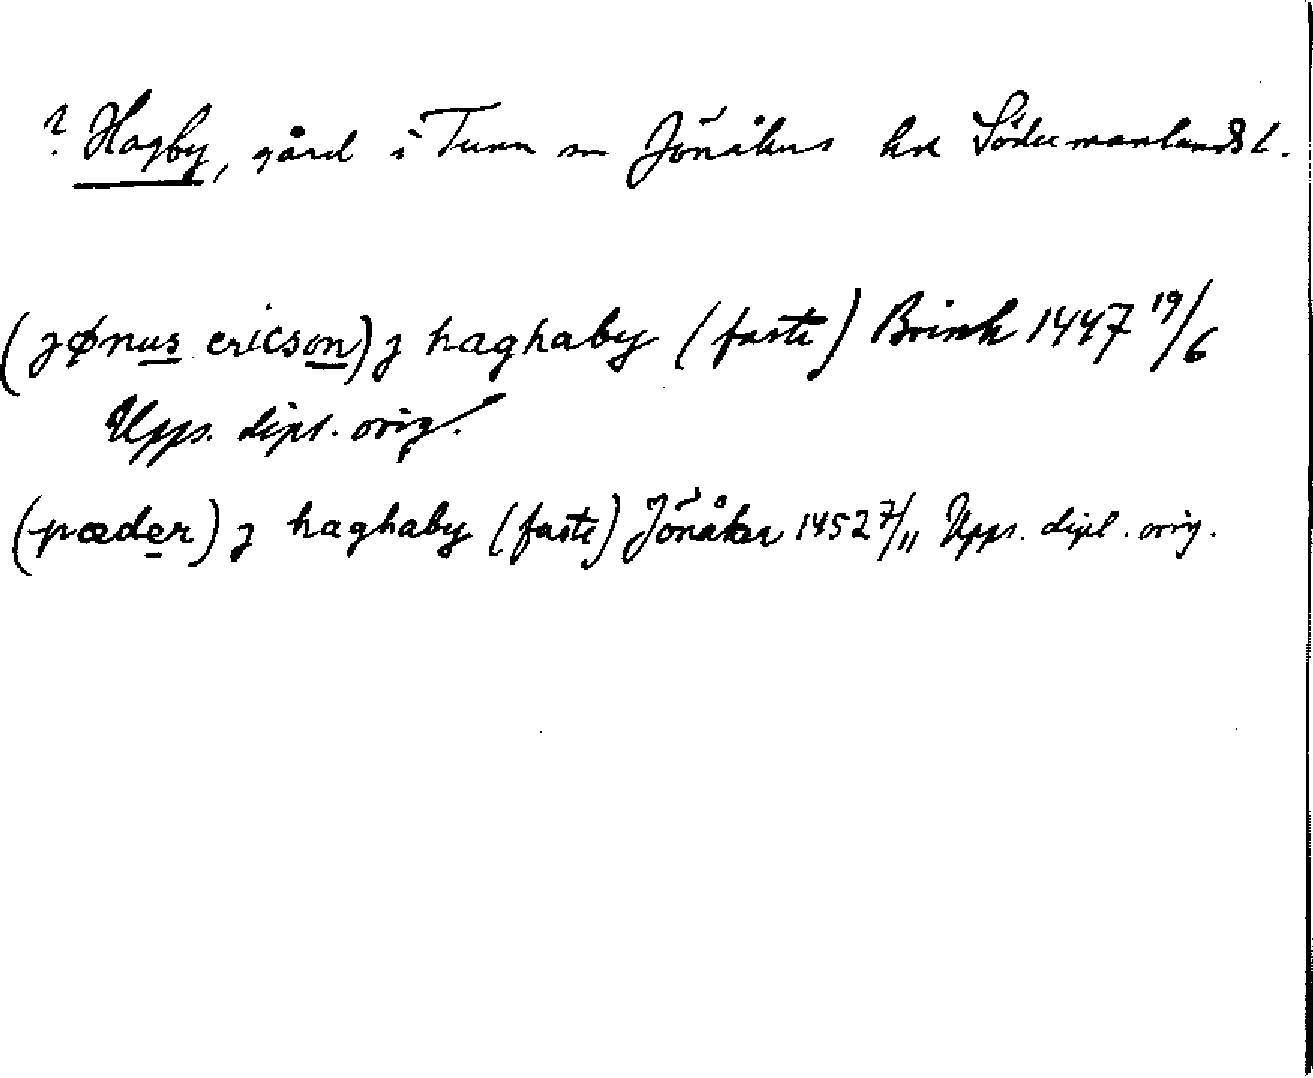 ? Hagby, gård i Tuna sn Jönåkers hd Södermanlands l.
(jønus ericson) j haghaby (faste) Brink 1447 19/6
Upps. dipl. orig.
(pæder) j haghaby (faste) Jönåker 1452 7/11 Upps. dipl. orig.